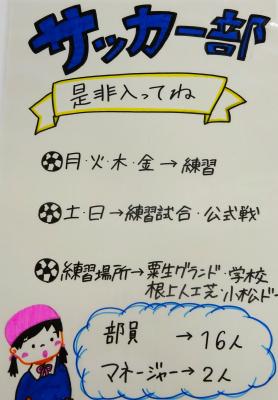 サッカー部
是非入ってね
月・火・木・金→練習
土・日→練習試合・公式戦
練習場所→粟生グランド・学校
根上人工芝・小松ドー
部員 → 16人
マネージャー→2人